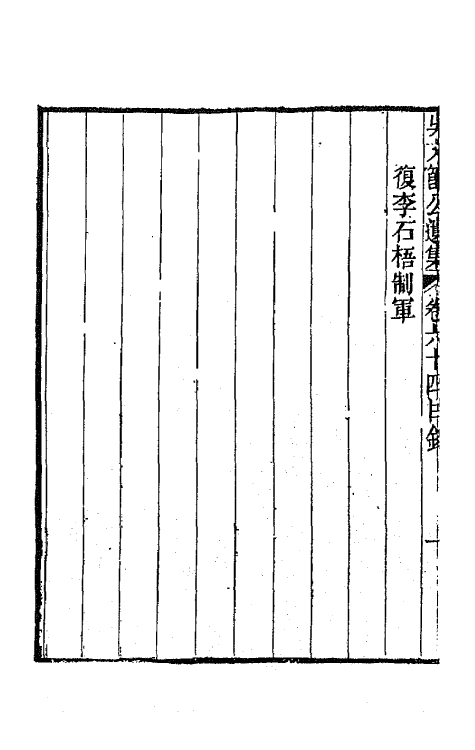 吳文節公遺集 卷六十四目錄 一
復李石梧制軍